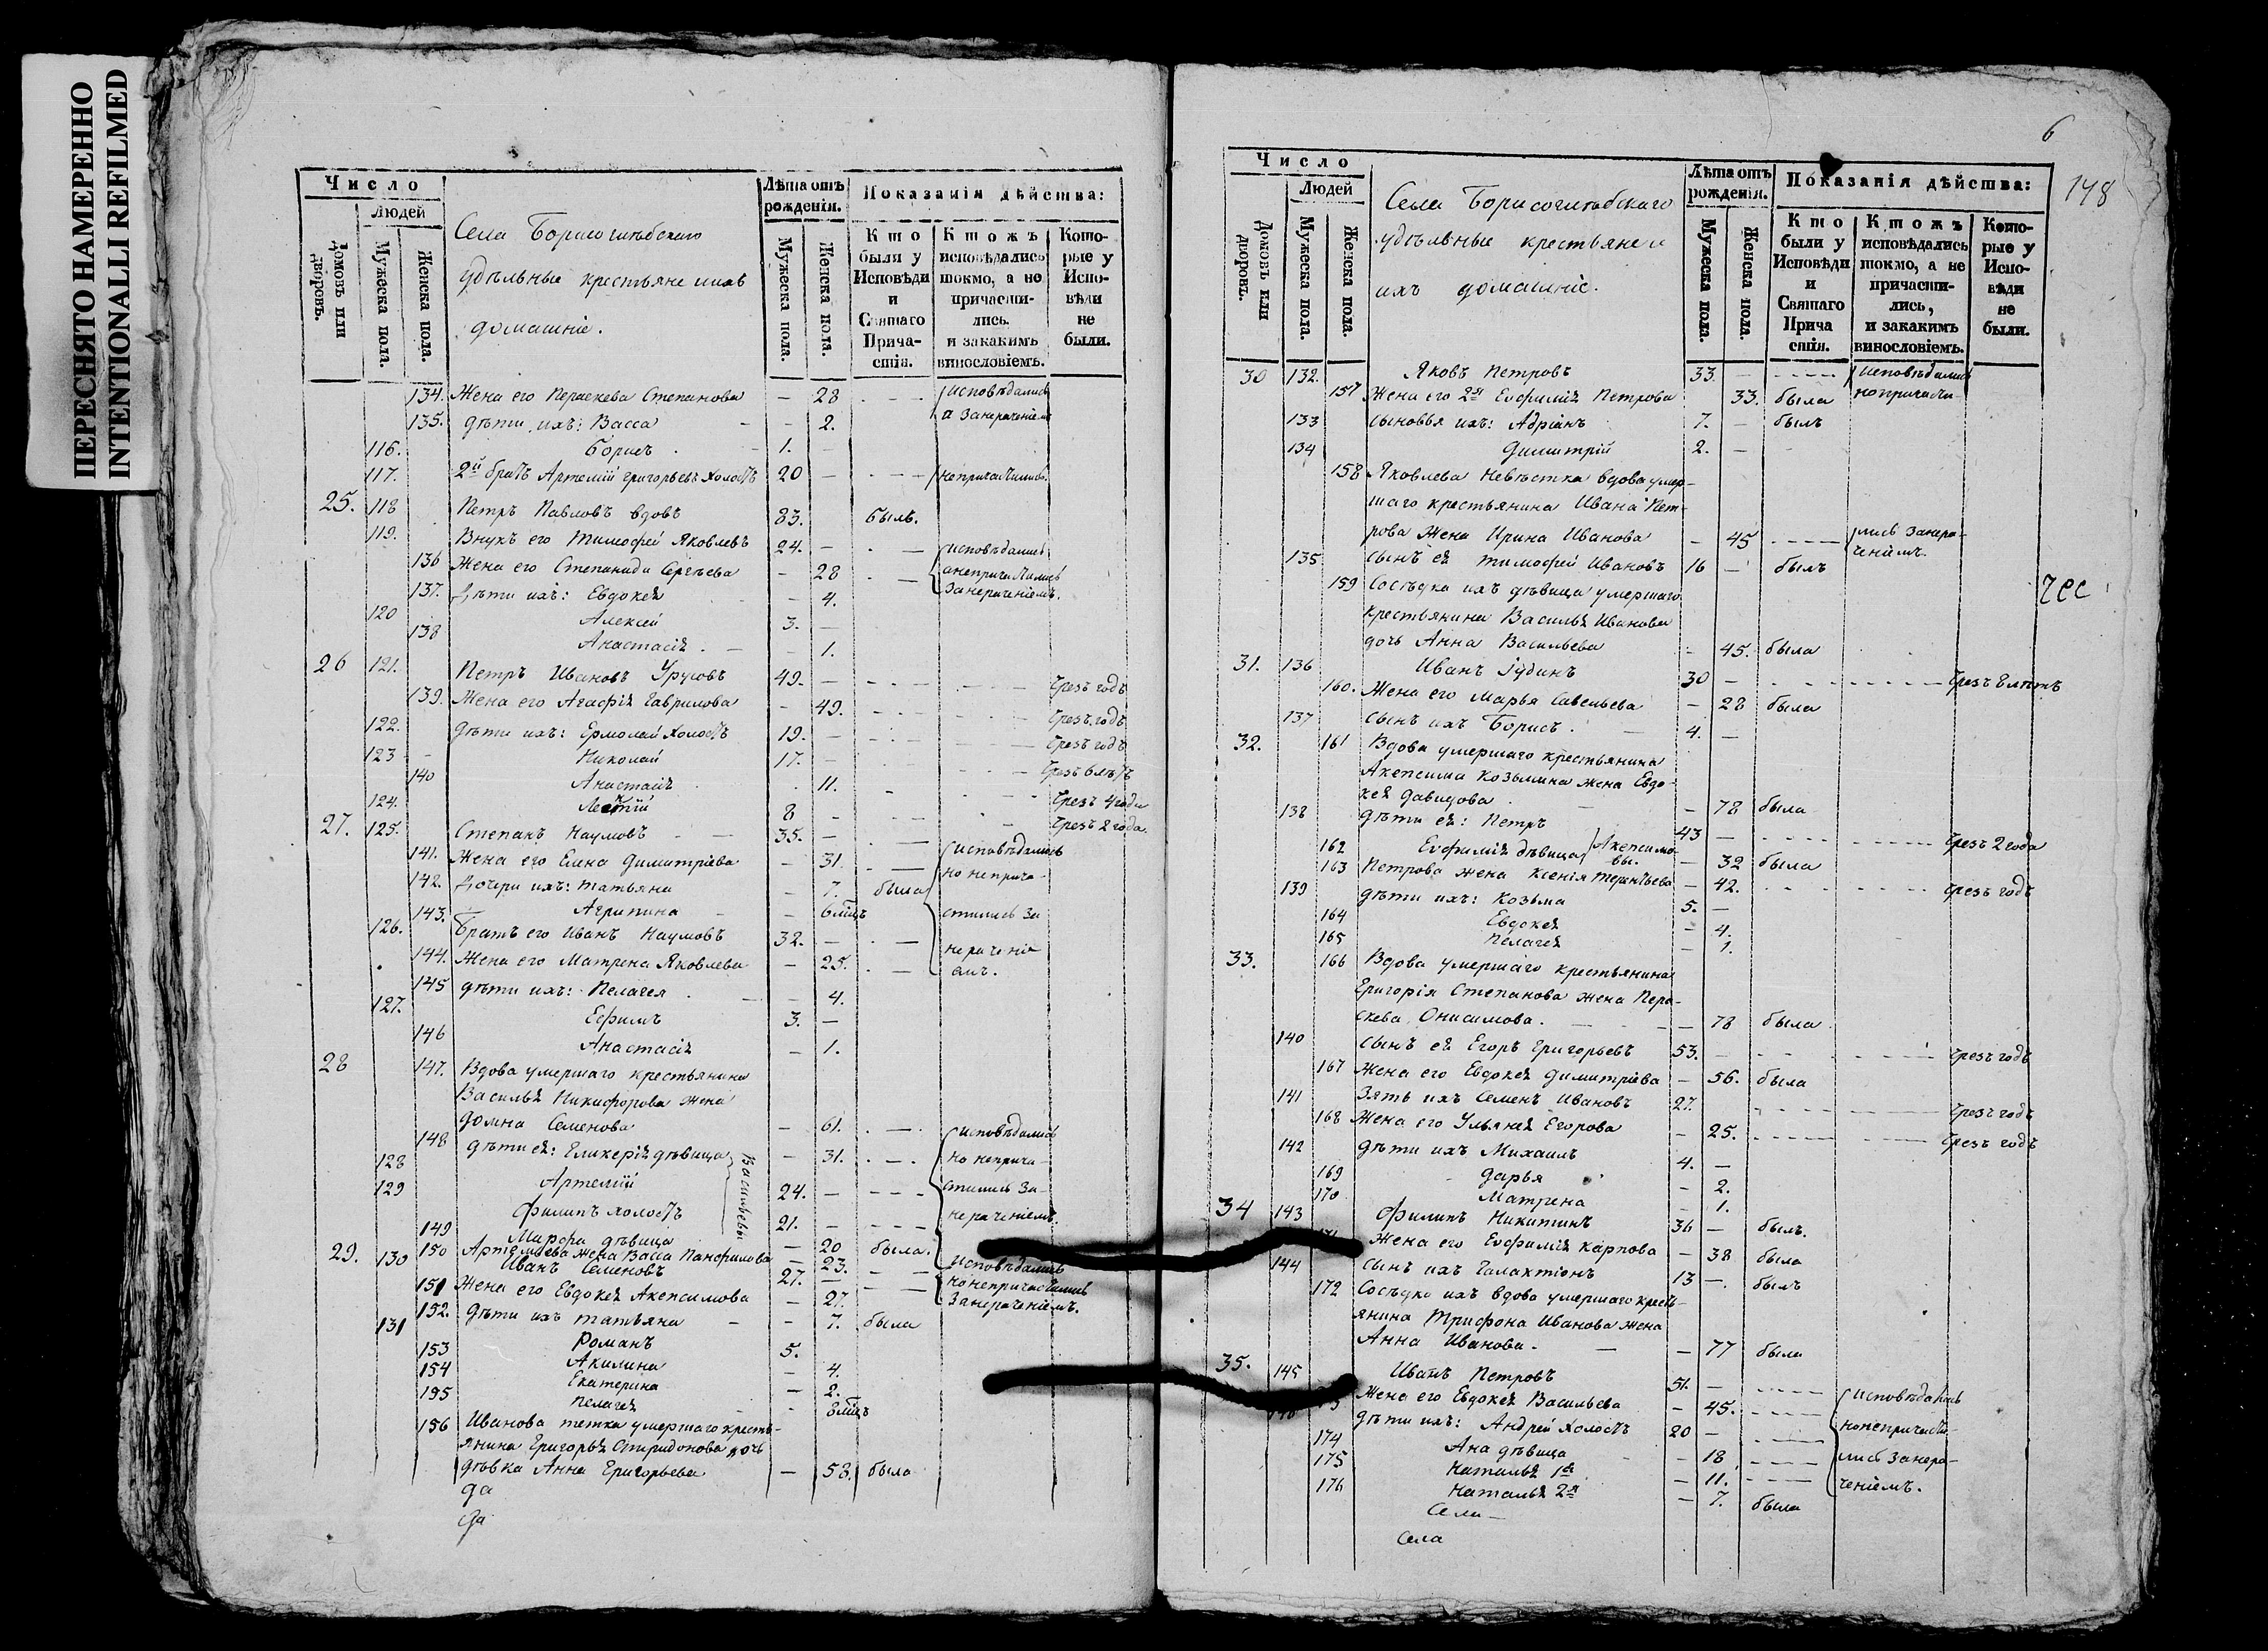 ПЕРЕСНЯТО НАМЕРЕННО
INTENTIONALLI REFILMED
Число
Людей
Домовъ или дворовъ.
Мужеска пола.
Женска пола.
Села Борисоглѣбскаго
удѣльные крестьяне и ихъ
домашніе.
Лѣта отъ рожденія.
Мужеска пола.
Женска пола.
Показанія дѣйства:
Кто были у Исповѣди и Святаго Причастія.
Ктожъ исповѣдались токмо, а не причастились. и закакимъ винословіемъ.
Которые у Исповѣди не были.
134. Жена его Параскева Степанова — 28 исповѣдались
135. дѣти ихъ: Васса — 2. а занераченіемъ
116. Борисъ 1. —
117. 2й братъ Артемій Григорьевъ холостъ 20 — непричастились
25. 118 Петръ Павловъ вдовъ 83. былъ.
119. Внукъ его Тимофей Яковлевъ 24. — исповѣдались
136 Жена его Степанида Сергѣева — 28 анепричастились
137. Дѣти ихъ: Евдокея — 4. Занераченіемъ.
120 Алексѣй 3. —
138 Анастасія — 1.
26 121. Петръ Ивановъ Урусовъ 49. — Чрезъ годъ
139. Жена его Агафія Гаврилова — 49. Чрезъ годъ
122. дѣти ихъ: Ермолай холостъ 19. — Чрезъ годъ
123 Николай 17. — Чрезъ 6 лѣтъ
140 Анастасія 11. Чрезъ 4 года
124. 8 Чрезъ 2 года.
27. 125. Степанъ Наумовъ 35. — исповѣдались
141. Жена его Елена Димитріева — 31. но неприча-
142. Дочери ихъ: Татьяна — 7. была
143. Агрипина — 6 мцъ стились за
126. Братъ его Иванъ Наумовъ 32. —
144. Жена его Матрена Яковлева — 25. нераченіе
145 дѣти ихъ: Пелагея — 4. емъ.
127. Ефимъ 3. —
146 Анастасія — 1.
28 147. Вдова умершаго крестьянина
Василья Никифорова жена
Домна Семенова — 61. исповѣдались
148 дѣти ея: Гликерія дѣвица — 31. но неприча-
128 Артемій 24. — стились за-
129 Филипъ холостъ 21. — нераченіемъ.
Васильевы
149 Марфа дѣвица — 20 была.
150 Артемьева жена Васса Панфилова — 23.
29. 130 Иванъ Семеновъ 27. — Исповѣдались
151 Жена его Евдокея Акепсимова — 27. но непричастились
152. дѣти ихъ Татьяна — 7. была Занераченіемъ.
131 Романъ 5.
153 Акилина — 4.
154 Екатерина — 2.
195 Пелагея — 8 мцъ
156 Иванова тетка умершаго кресть-
янина Григорья Спиридонова дочь
дѣвка Анна Григорьева — 58. была
да
да
6
148
Число
Людей
Домовъ или дворовъ.
Мужеска пола.
Женска пола.
Села Борисоглѣбскаго
удѣльные крестьяне и
ихъ домашніе.
Лѣта отъ рожденія.
Мужеска пола.
Женска пола.
Показанія дѣйства:
Кто были у Исповѣди и Святаго Прича стія.
Ктожъ исповѣдались токмо, а не причастились, и закакимъ винословіемъ.
Которые у Исповѣди не были.
30 132. Яковъ Петровъ 33. — исповѣдались
157 Жена его 2я Евфимія Петрова 33. была но причасти-
133 сыновья ихъ: Адріанъ 7. — былъ
134 Димитрій 2. —
158 Яковлева невѣстка вдова умер-
шаго крестьянина Ивана Пет-
рова жена Ирина Иванова — 45 лись занера-
135 сынъ ея Тимофей Ивановъ 16 — былъ ченіемъ.
159 Сосѣдка ихъ дѣвица умершаго
крестьянина Василья Иванова
дочь Анна Васильева — 45. была
31. 136 Иванъ Іудинъ 30 — Чрезъ 8 лѣтъ
160. Жена его Марья Савельева — 28 была
137 сынъ ихъ Борисъ 4. —
32. 161 Вдова умершаго крестьянина
Акепсима Козьмина жена Евдо-
кея Давидова — 78 была
138 дѣти ея: Петръ 43 — Чрезъ 2 года
162 Евфимія дѣвица Акепсимовы. — 32 была
163 Петрова жена Ксенія Терентьева — 42. Чрезъ годъ
139 дѣти ихъ: Козьма 5. —
164 Евдокея — 4.
165 Пелагея — 1.
33. 166 Вдова умершаго крестьянина
Григорія Степанова жена Пара-
скева Онисимова. — 78 была
140 сынъ ея Егоръ Григорьевъ 53. — Чрезъ годъ
167 Жена его Евдокея Димитріева — 56. была
141 Зять ихъ Семенъ Ивановъ 27. Чрезъ годъ
168 Жена его Ульянея Егорова — 25. Чрезъ годъ
142 дѣти ихъ Михаилъ 4. —
169 Дарья — 2.
170 Матрена — 1.
34 143 Филипъ Никитинъ 36 — былъ.
Жена его Евфимія Карпова — 38 была
144 сынъ ихъ Галактіонъ 13 — былъ
172 Сосѣдка ихъ вдова умершаго кресть-
янина Трифона Иванова жена
Анна Иванова. — 77 была
35. 145 Иванъ Петровъ 51. — исповѣдались
Жена его Евдокея Васильева — 45.
дѣти ихъ: Андрей холостъ 20 — но непричасти-
174 Ана дѣвица — 18 лись занера-
175 Наталья 1я — 11. ченіемъ.
176 Наталья 2я — 7. была
Села
Села